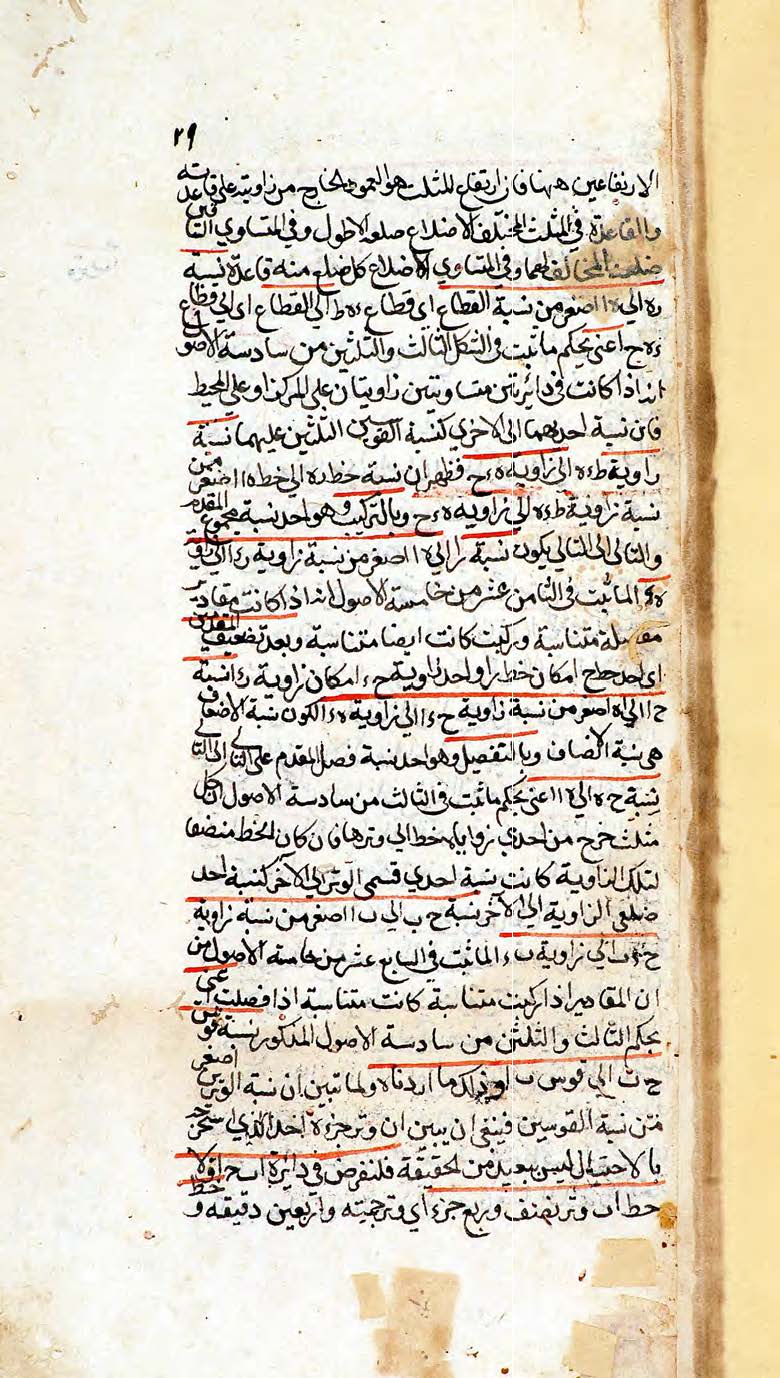 ٢٩
الارتفاعين ههنا فان ارتفاع المثلث هو العمود الخارج من زاويته على قاعدته
والقاعدة في المثلث المختلف الاضلاع ضلعه الاطول وفي المتساوي الساقين
ضلعه المخالف لهما وفي المتساوي الاضلاع كل ضلع منه قاعدة نسبة
ره الى ه ا اصغر من نسبة القطاع اي قطاع ءه ط الى القطاع اي الى قطاع
ءه ح اعني بحكم ما ثبت في الشكل الثالث والثلثين من سادسة الاصول
انه اذا كانت في دائرتين متساويتين زاويتان على المركز او على المحيط
فان نسبة احديهما الى الاخري كنسبة القوسين اللتين عليهما نسبة
زاوية طءه الى زاوية هءح فظهر ان نسبة خط ره الى خط ه ا اصغر من
نسبة زاوية طءه الى زاوية هءح وبالتركيب وهو اخذ نسبة مجموع المقدم
والتالى الى التالى يكون نسبة را الى ه ا اصغر من نسبة زاوية رء ا الى زاوية
هء ا لما ثبت في الثامن عشر من خامسة الاصول انه اذا كانت مقادير
مفصلة متناسبة وركبت كانت ايضا متناسبة وبعد تضعيف المقدمين
اي اخذ خط ح ا مكان خط را واخذ زاوية حء ا مكان زاوية رء ا نسبة
ح ا الى ا ه اصغر من نسبة زاوية حء ا الى زاوية هء ا لكون نسبة الاضعاف
هي نسبة الانصاف وبالتفصيل وهو اخذ نسبة فضل المقدم على التالى الى التالى
نسبة ح ه الى ه ا اعني بحكم ما ثبت في الثالث من سادسة الاصول ان كل
مثلث خرج من احدي زواياه خط الى وترها فان كان الخط منصفا
لتلك الزاوية كانت نسبة احدي قسمى الوتر الى الآخر كنسبة احد
ضلعى الزاوية الى الآخر نسبة ح ب الى ب ا اصغر من نسبة زاوية
حءب الى زاوية بء ا لما ثبت في السابع عشر من خامسة الاصول من
ان المقادير اذا ركبت متناسبة كانت متناسبة اذا فصلت اعني
بحكم الثالث والثلثين من سادسة الاصول المذكور نسبة قوس
ح ب الى قوس ب ا وذلك ما اردناه ولما تبين ان نسبة الوترين اصغر
من نسبة القوسين فينبغى ان يبين ان وتر جزءة احد الذي استخرج
بالاحتيال ليس ببعيد من الحقيقة فلنفرض في دائرة ا ب ح اولا
خط ا ب وتر نصف وربع جزء اي وتر خمسة واربعين دقيقه و خط